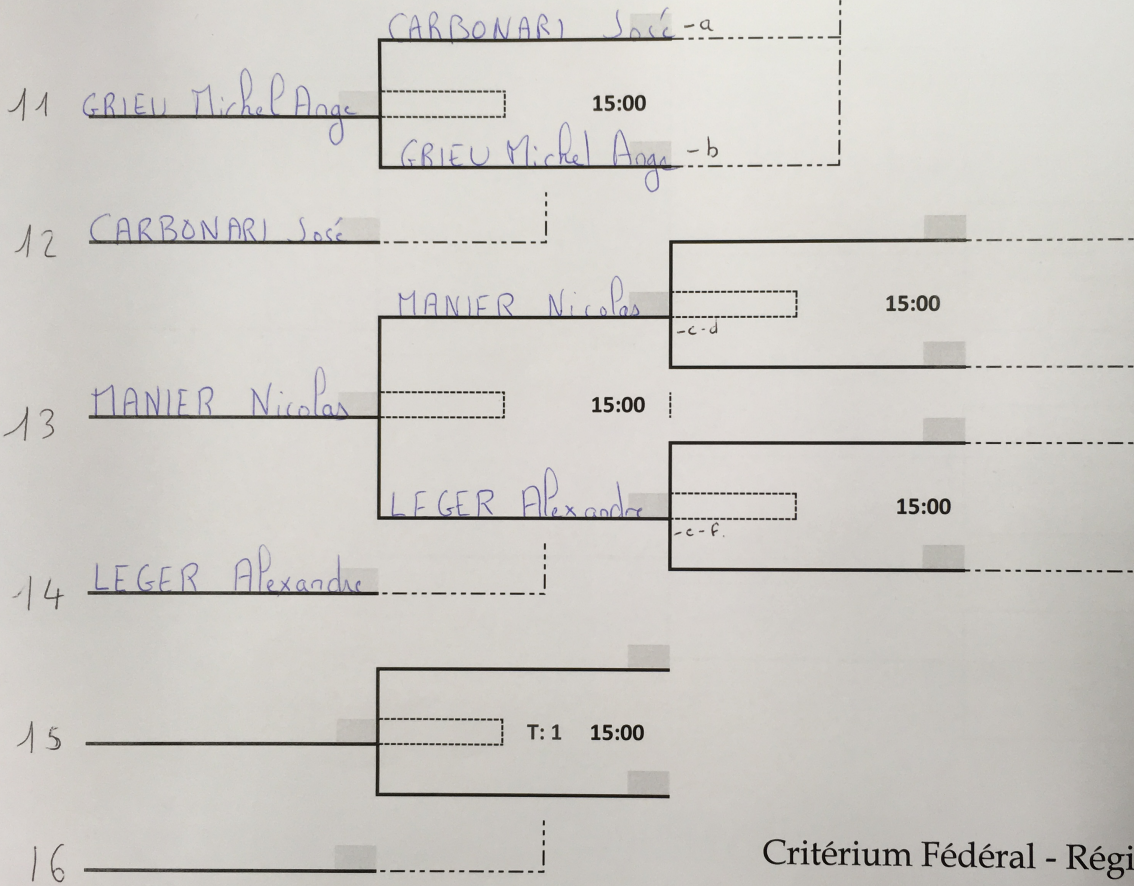 CARBONARI José -a
11 GRIEU Michel Ange 15:00
GRIEU Michel Ange -b
12 CARBONARI José
MANIER Nicolas 15:00
-c-d
13 MANIER Nicolas 15:00
LEGER Alexandre 15:00
-e-f.
14 LEGER Alexandre
15 T: 1 15:00
16
Critérium Fédéral - Régi